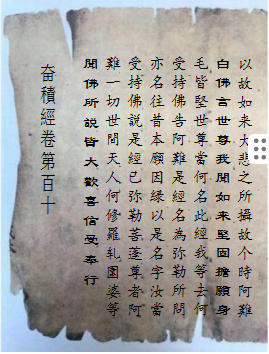 以故如来大悲之所攝故个時阿難
白佛言世尊我聞如来堅固擔願身
毛皆堅世尊當何名此經我等去何
受持佛告阿難是經名為弥勒所問
亦名往昔本願因緣以是名字汝當
受持佛說是經已弥勒菩蓬尊者阿
難一切世間天人何修羅軋圉婆等
聞佛所説皆大歡喜信受奉行
奋積經卷第百十